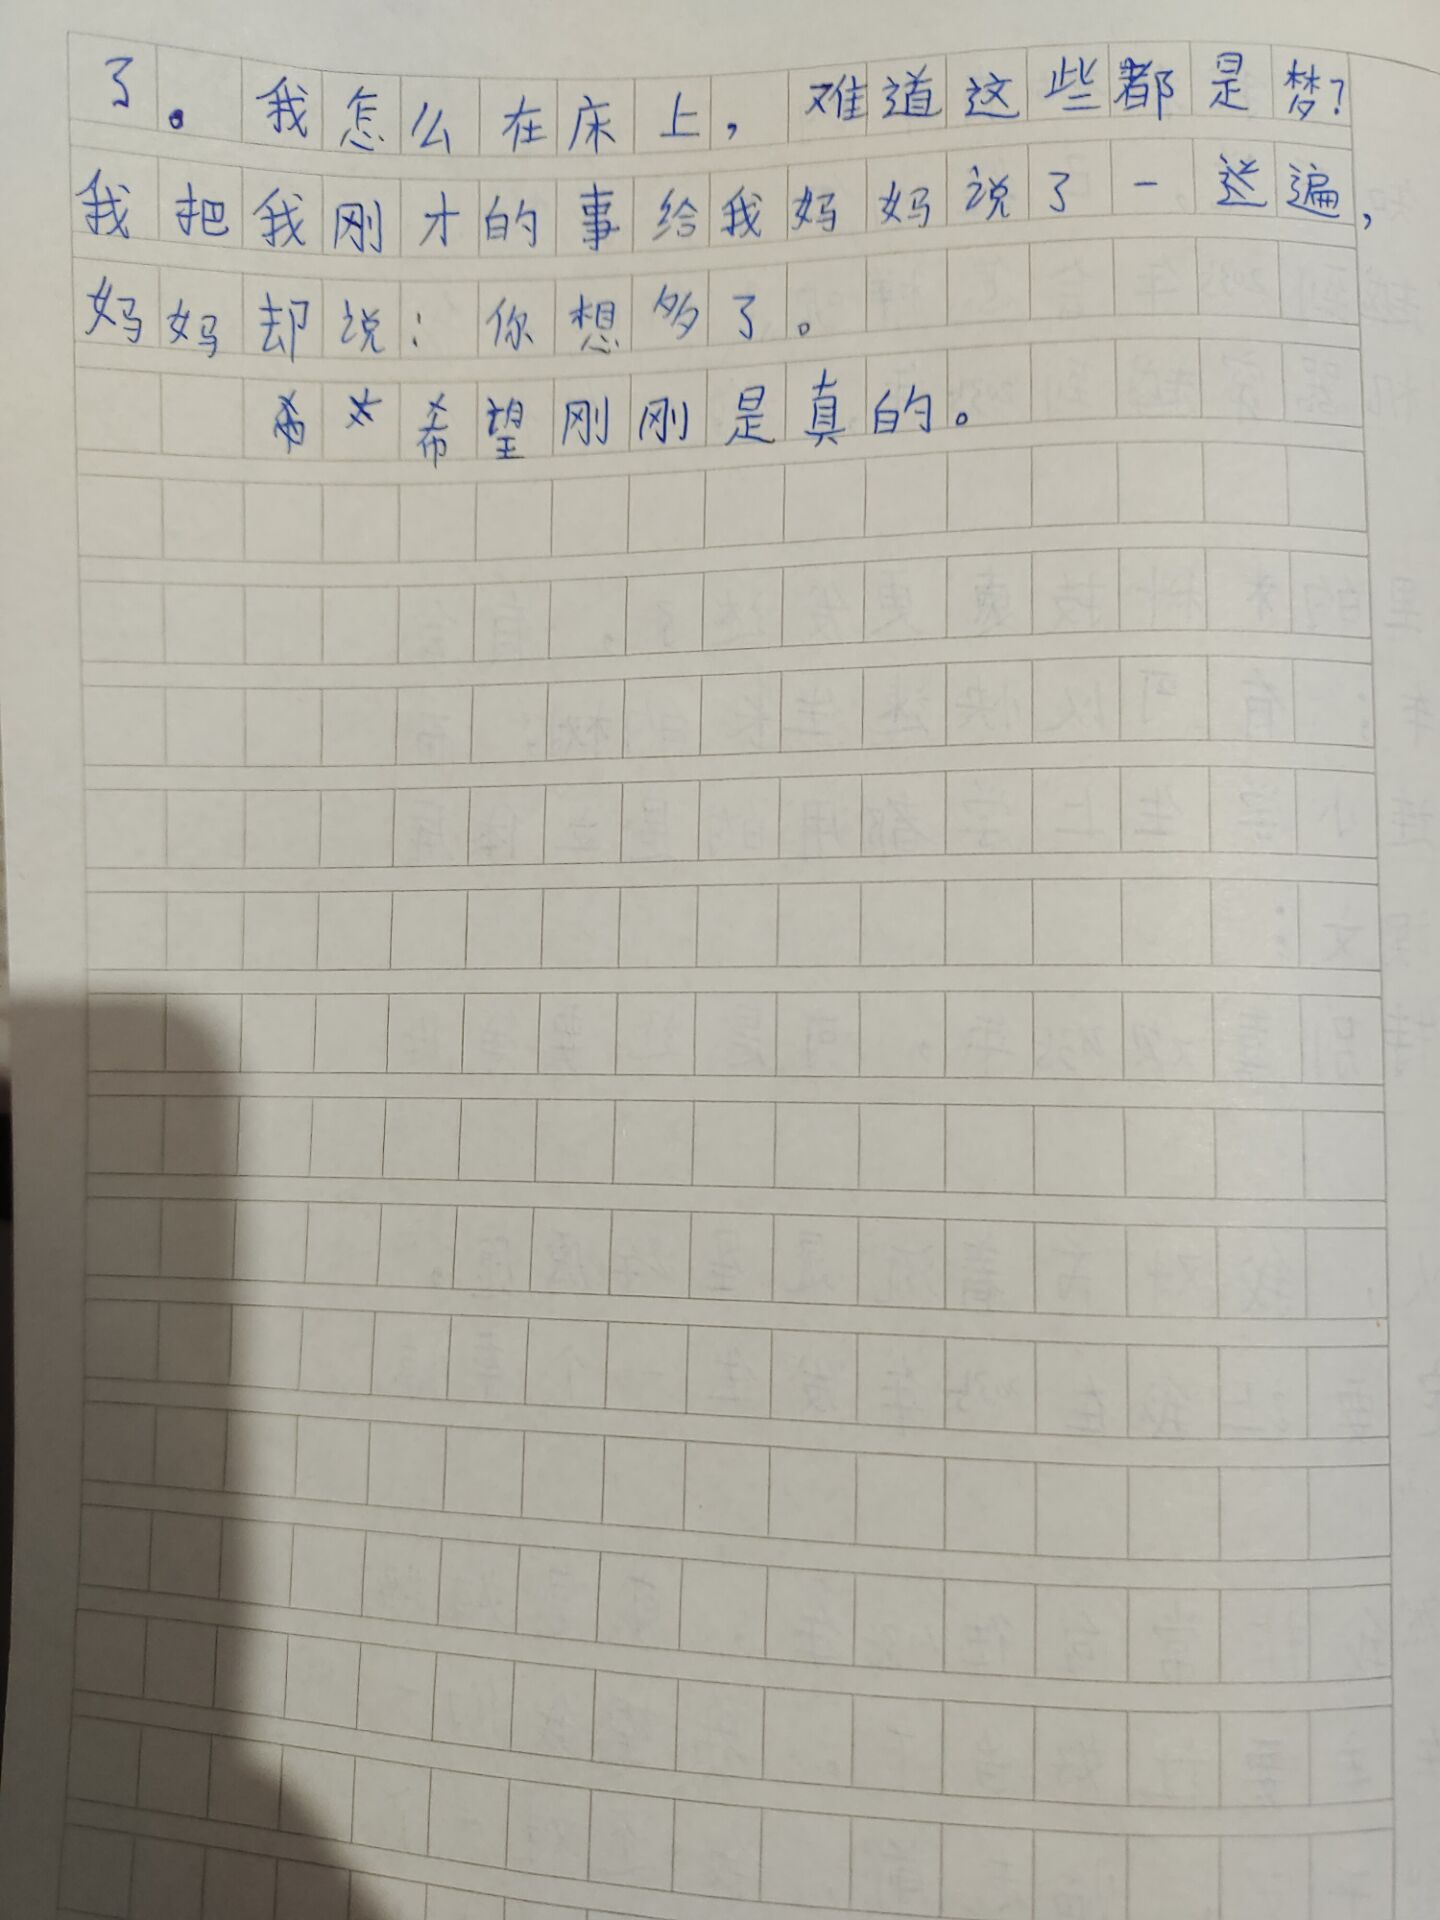 了。我怎么在床上，难道这些都是梦？
我把我刚才的事给我妈妈说了一遍，
妈妈却说：你想多了。
希望刚刚是真的。